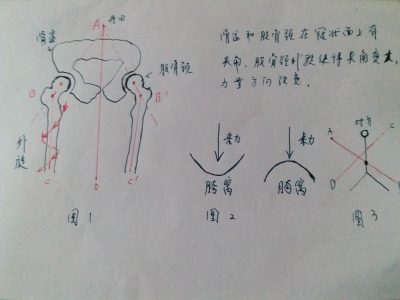 A
骨盆
股骨颈
B
B'
外旋
C
O
C'
图1
骨盆和股骨颈在冠状面上有
夹角.股骨颈外旋使得夹角变大
力量方向改变.
来力
胯窝
图2
来力
胯窝
对方
A
C
D
B
图3